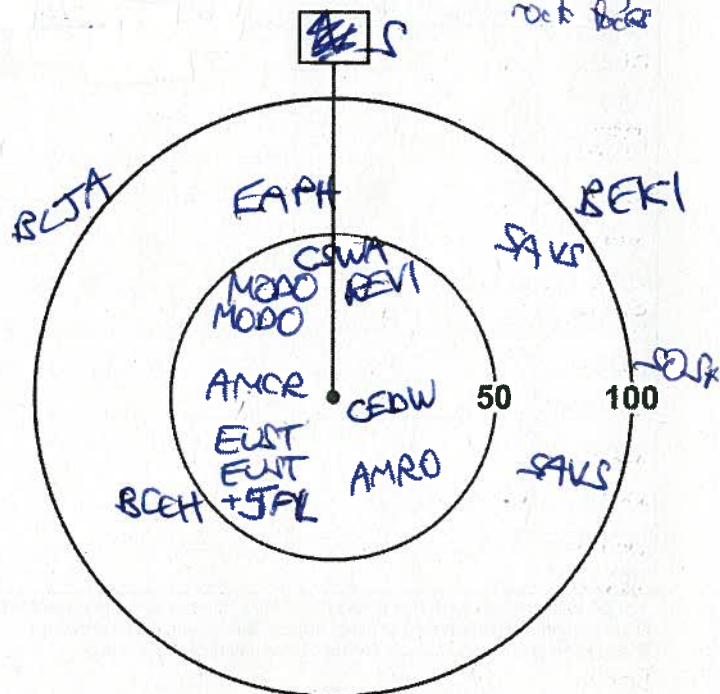 S
BLJA
EAPH
BEKI
SAVS
CSWA
MODO REVI
MODO
SOSP
AMCR
CEDW
50
100
EUST
EUST
AMRO
SAVS
BCCH +5 FL